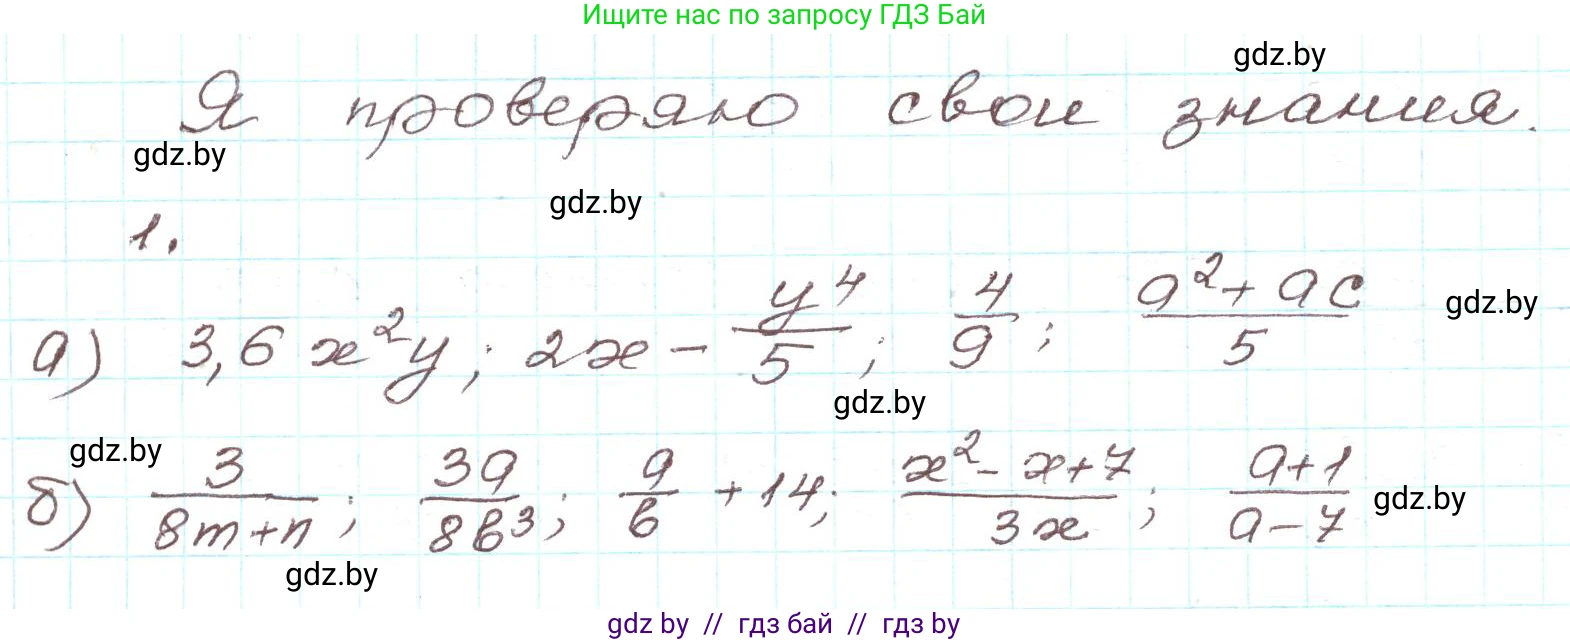 Ищите нас по запросу ГДЗ Бай
gdz.by
Я проверяю свои знания.
gdz.by
gdz.by
1.
а) 3,6 x²y; 2x - y⁴/5; 4/9; (a² + ac)/5
gdz.by
gdz.by
gdz.by
б) 3/(8m+n); 3a/(8b³); a/b + 14; (x² - x + 7)/(3x); (a+1)/(a-7)
gdz.by
gdz.by
gdz.by // гдз бай // гдз by